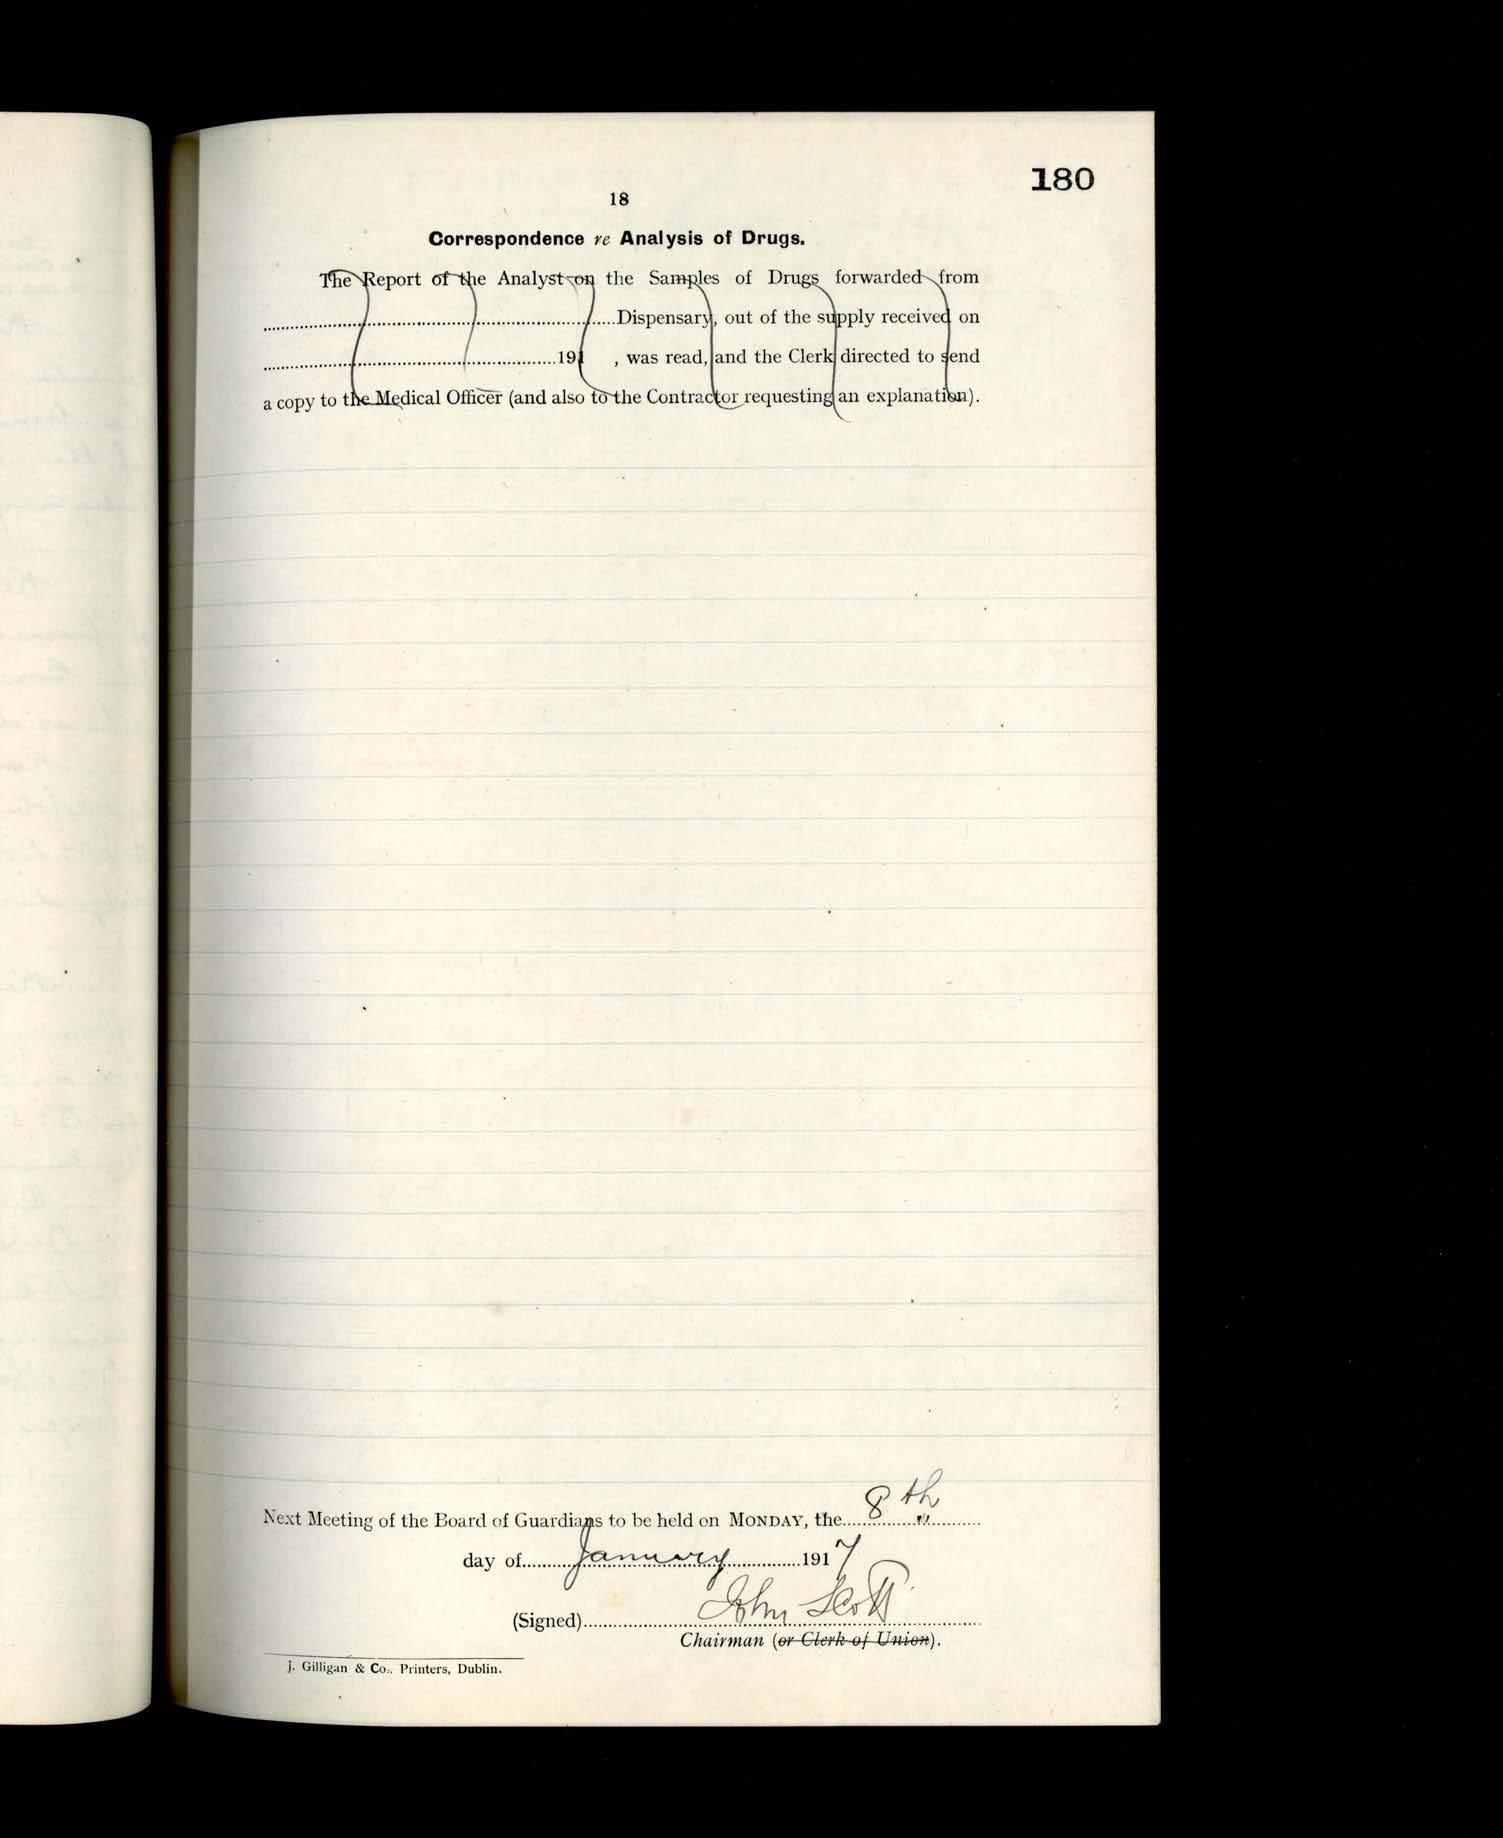 180
18
Correspondence re Analysis of Drugs.
The Report of the Analyst on the Samples of Drugs forwarded from
............Dispensary, out of the supply received on
............191 , was read, and the Clerk directed to send
a copy to the Medical Officer (and also to the Contractor requesting an explanation).
Next Meeting of the Board of Guardians to be held on MONDAY, the 8th
day of January 1917
(Signed) John Scott
Chairman (or Clerk of Union).
J. Gilligan & Co., Printers, Dublin.